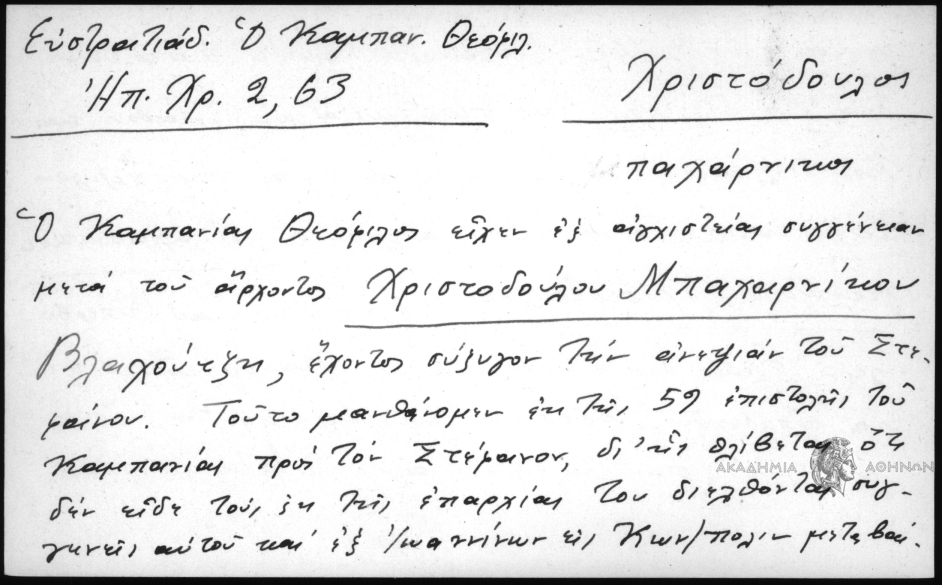 Εὐστρατιάδ. Ὁ Καμπαν. Θεόφιλ.
Ἠπ. Χρ. 2, 63
Χριστόδουλος
παχάρνικος
Ὁ Καμπανίας Θεόφιλος εἶχεν ἐξ ἀγχιστείας συγγένειαν
μετά τοῦ ἄρχοντος Χριστοδούλου Μπαχαρνίκου
Βλαχούτζη, ἔχοντος σύζυγον τήν ἀνεψιάν τοῦ Στε-
φάνου. Τοῦτο μανθάνομεν ἐκ τῆς 59 ἐπιστολῆς τοῦ
Καμπανίας πρός τόν Στέφανον, δι' ἧς θλίβεται ὅτι
δέν εἶδε τούς ἐκ τῆς ἐπαρχίας του διελθόντας συγ-
γενεῖς αὐτοῦ καί ἐξ Ἰωαννίνων εἰς Κων/πολιν μεταβάς.
ΑΚΑΔΗΜΙΑ ΑΘΗΝΩΝ